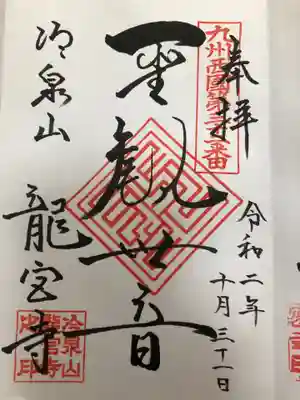 奉拝
九州西國第三十二番
令和二年
十月三十一日
聖観世音
冷泉山
龍宮寺
冷泉山
龍宮寺